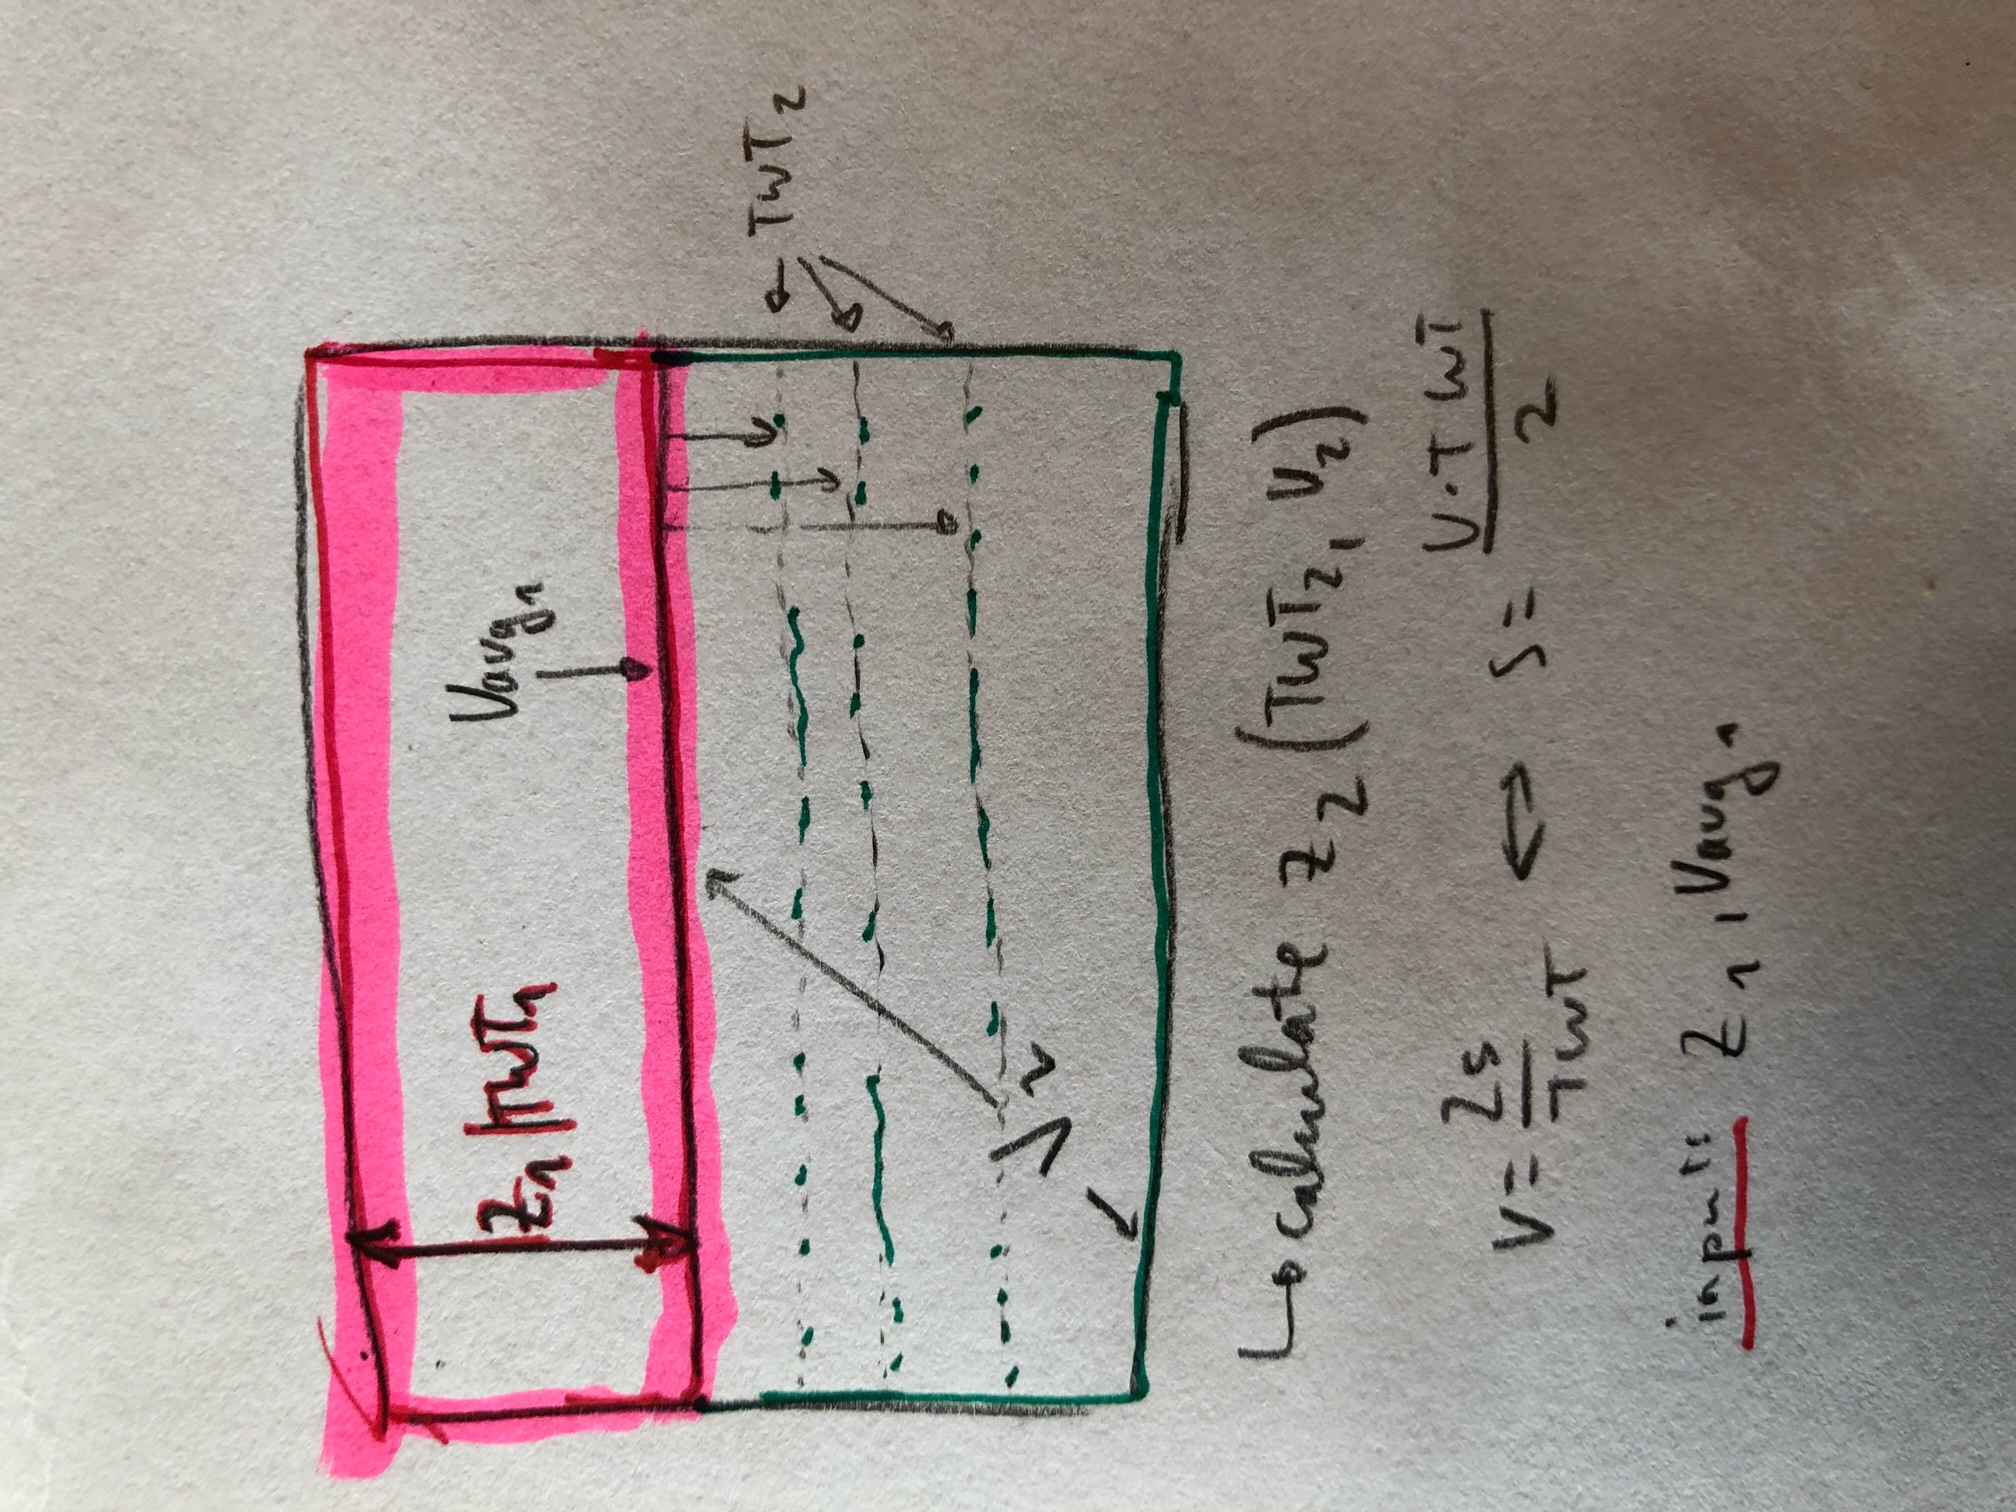 Z₁ | TWT₁
Vavg₁
TWT₂
V₂
↳ calculate Z₂ (TWT₂, V₂)
V = 2s / TWT ⟺ s = V·TWT / 2
inputs Z₁, Vavg₁